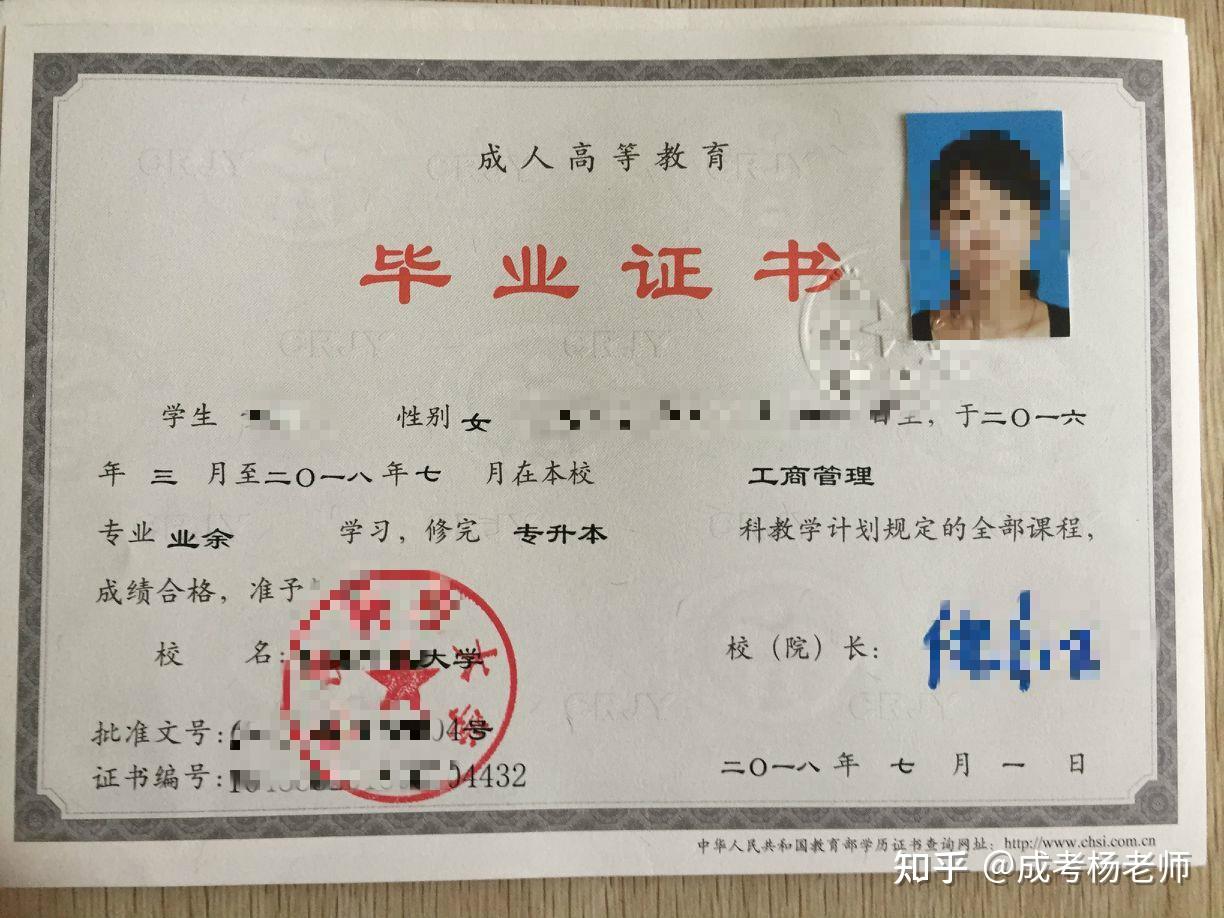 成人高等教育
毕业证书
学生 性别 女 日生，于二〇一六
年 三 月至二〇一八年七 月在本校 工商管理
专业 业余 学习，修完 专升本 科教学计划规定的全部课程，
成绩合格，准予
校 名： 大学 校（院）长：
批准文号： 04号
证书编号： 04432 二〇一八 年 七 月 一 日
中华人民共和国教育部学历证书查询网址：http://www.chsi.com.cn
知乎 @成考杨老师